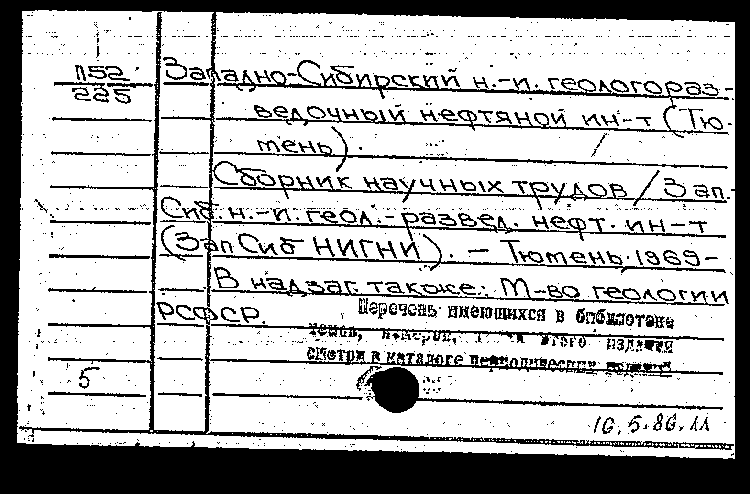 П52
225
Западно-Сибирский н.-и. геологораз-
ведочный нефтяной ин-т (Тю-
мень).
Сборник научных трудов / Зап.-
Сиб. н.-и. геол.-развед. нефт. ин-т
(ЗапСиб НИГНИ). — Тюмень, 1969-
В надзаг. также: М-во геологии
РСФСР.
Перечень имеющихся в библиотеке
томов, этого издания
смотри в каталоге периодических изданий
5